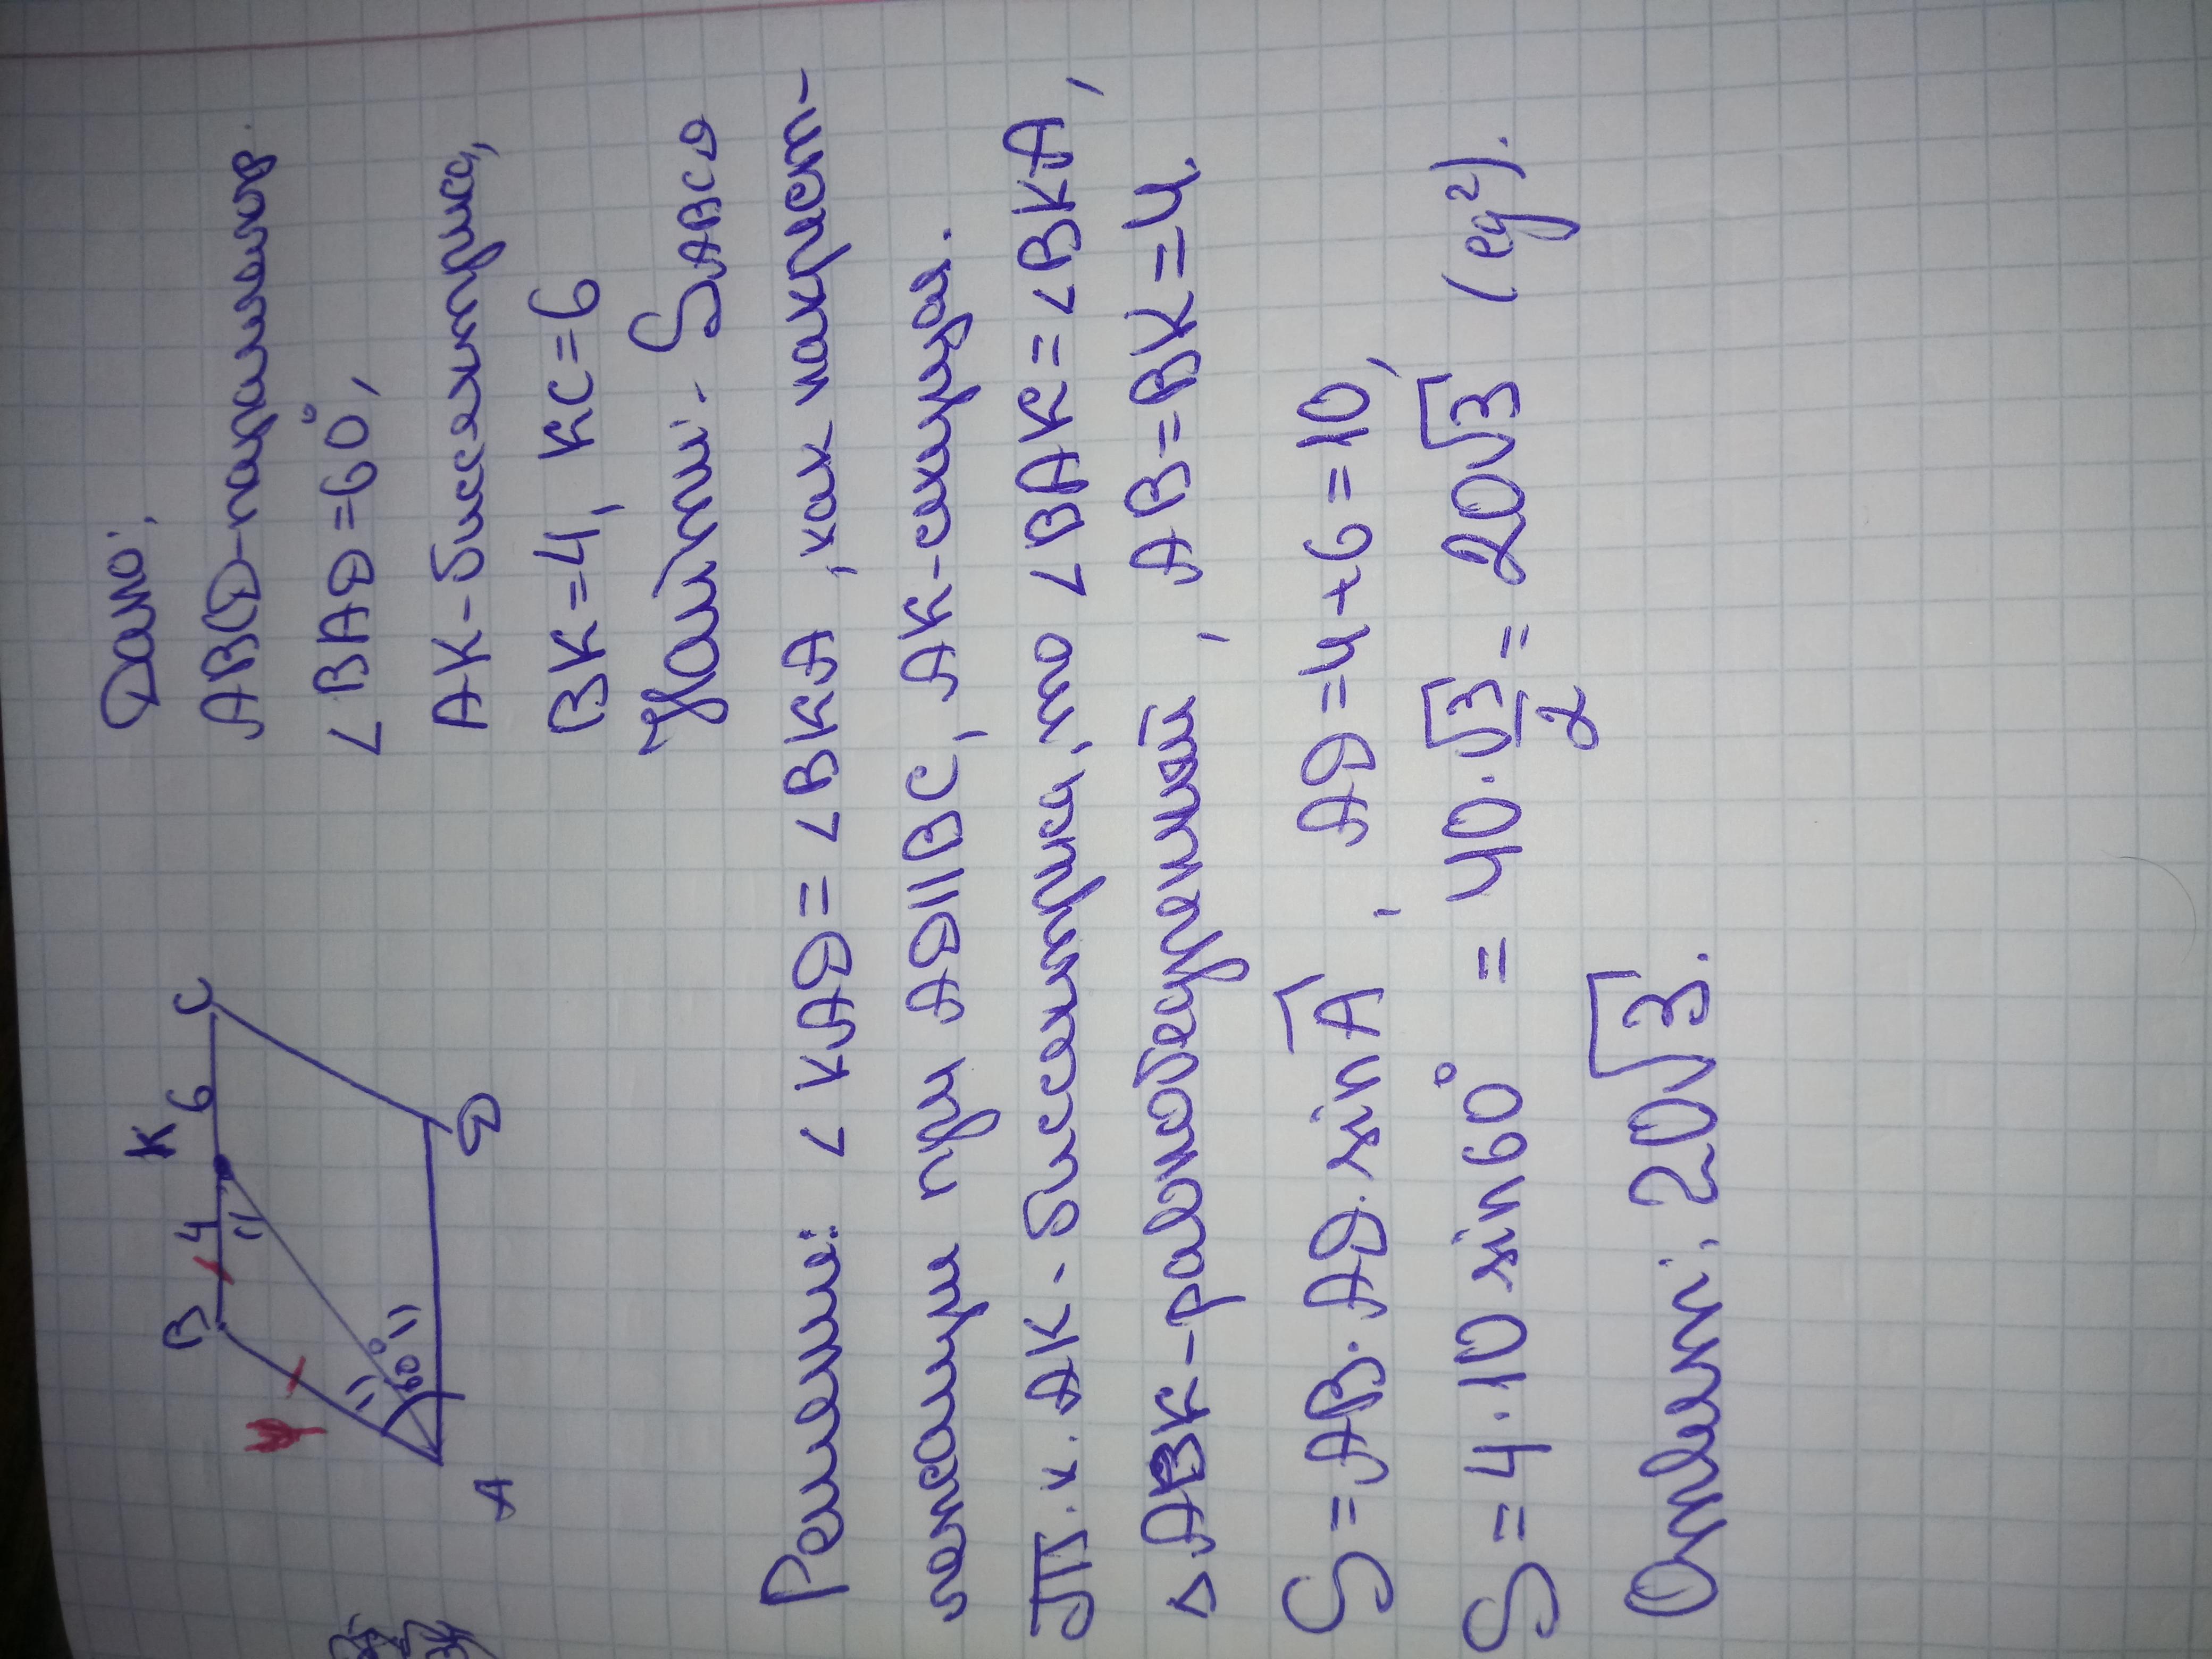 B 4 K 6 C
4
60°
A D
Дано:
ABCD-параллелограмм
∠BAD=60°,
AK-биссектриса,
BK=4, KC=6
Найти: SABCD
Решение: ∠KAD=∠BKA, как накрест-
лежащие при AD||BC, AK-секущей.
Т.к. AK-биссектриса, то ∠BAK=∠BKA,
△ABK-равнобедренный, AB=BK=4.
S=AB·AD·sinA, AD=4+6=10,
S=4·10·sin60°=40·√3/2=20√3 (ед²).
Ответ: 20√3.